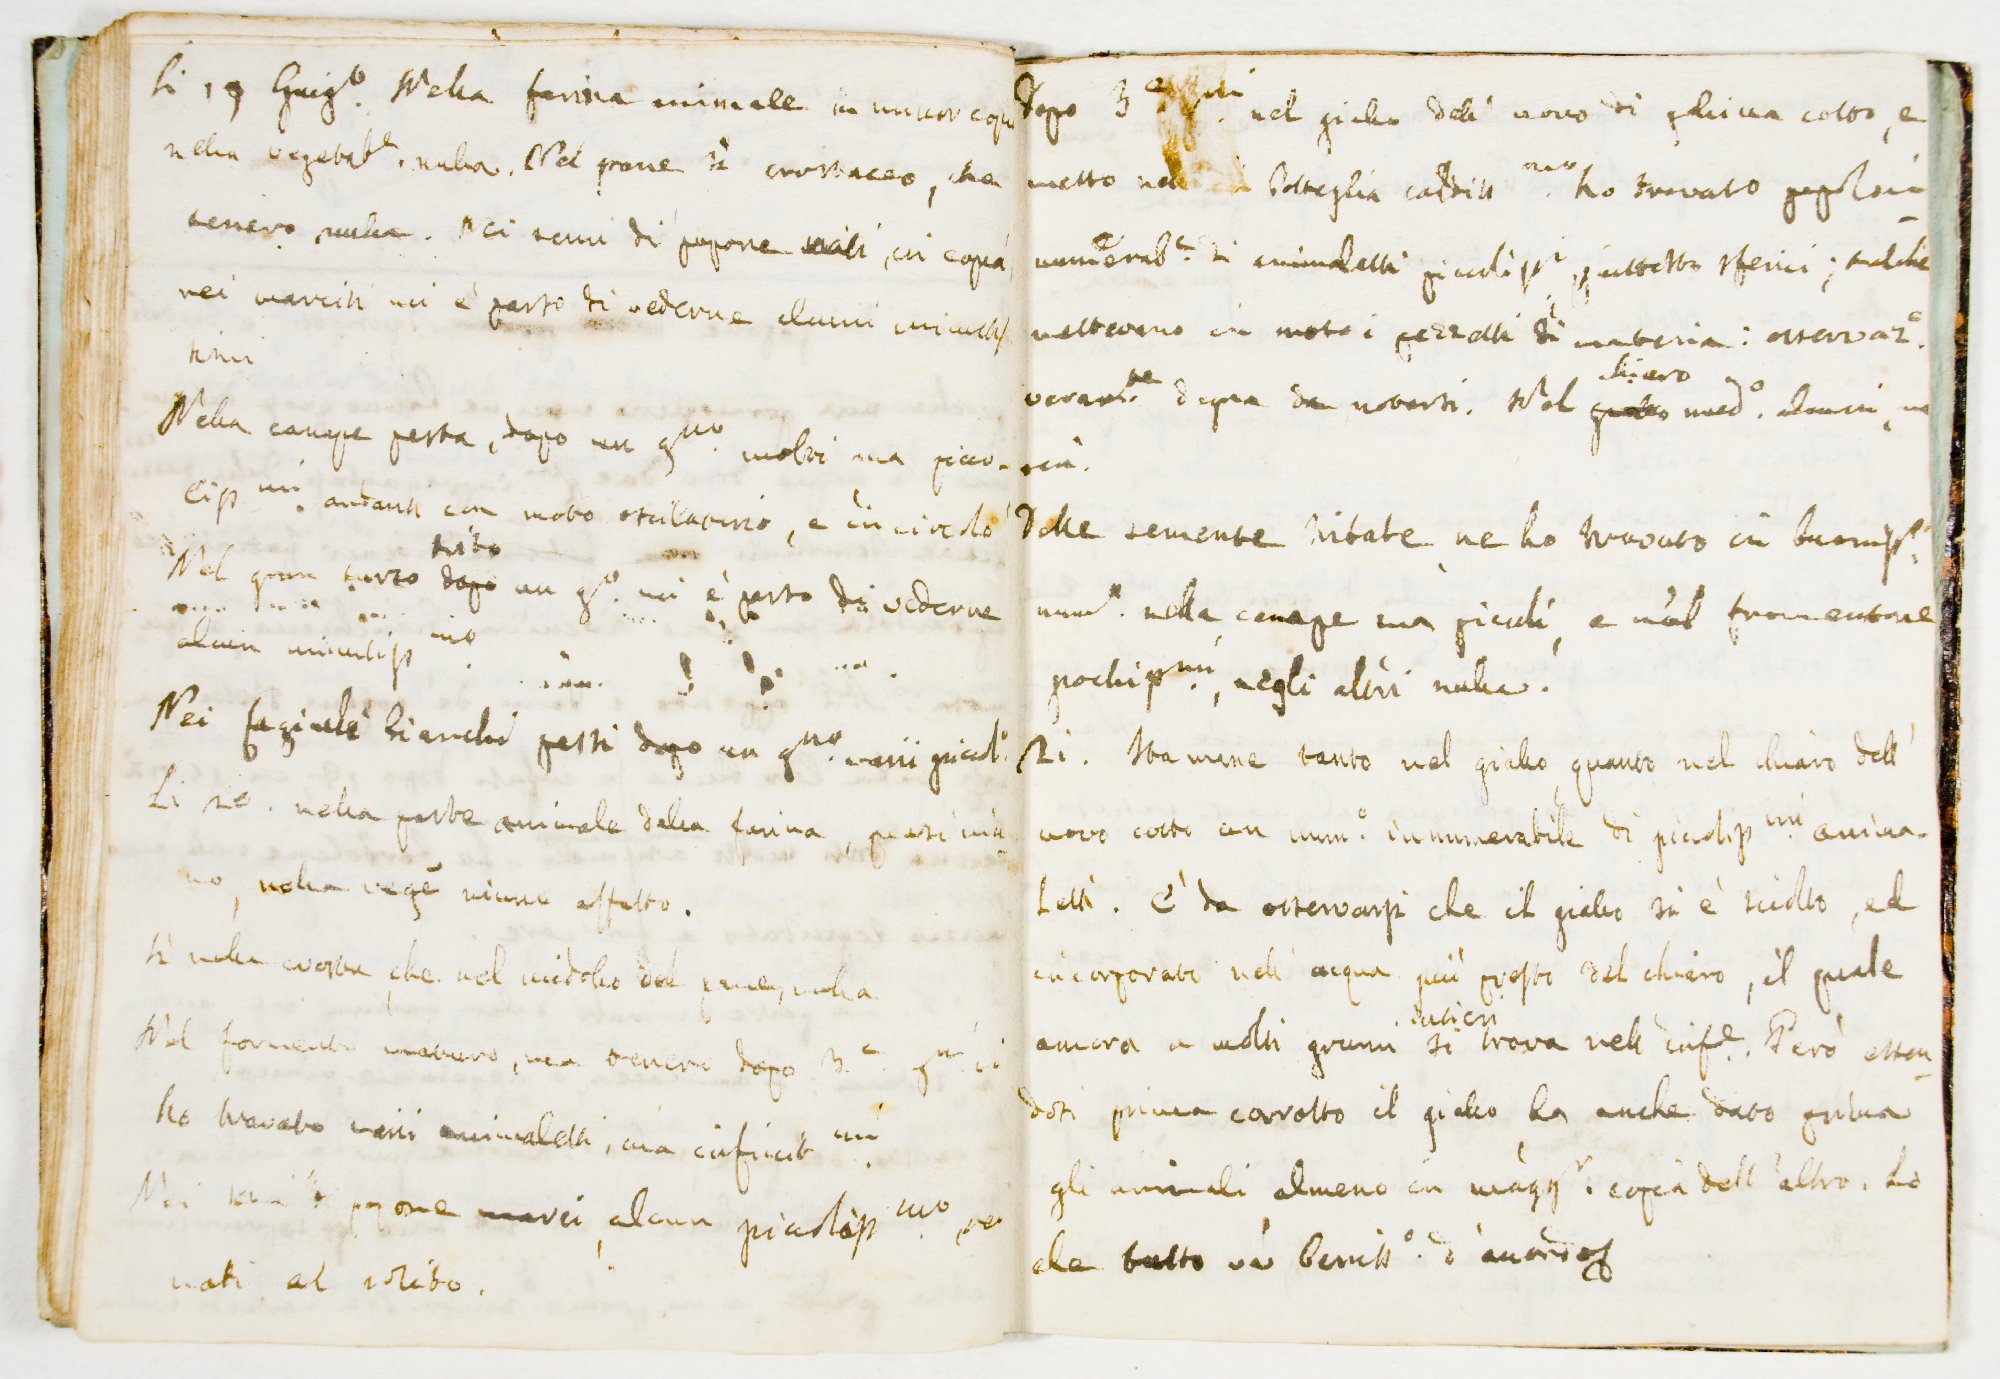 Li 19 Giug.o Nella farina animale in minor copia
nella vegetab.e nulla. Nel pane sì crostaceo, che
tenero nulla. Nei semi di popone nati, in copia,
nei marciti mi è parso di vederne alcuni minutis
simi
Nella canape pesta, dopo un g.no molti ma picco-
liss.mi andanti con moto oscilatorio, e in circolo
Nel gran turco trito dopo un g.o mi è parso di vederne
alcun minutiss.mo
Nei fagiuoli bianchi pesti dopo un g.no varii piccol.i
Li 20. nella parte animale della farina, quasi niu-
no, nella vege niuno affatto.
Sì nella crosta che nel midollo del pane, nulla
Nel formento maturo, ma tenero dopo 3.e g.ni ci
ho trovato varii animaletti, ma infinit.mi
Nei semi di popone marci, alcun picoliss.mo,
nati al solito.
dopo 3.e g.ni nel giallo dell' uovo di galina cotto, e
messo nella bottiglia ho trovato popolo in-
numerab.e di animaletti picoliss.i piuttosto sferici; talchè
mettevano in moto i pezzetti di materia: osservaz.e
veram.te degna da notarsi. Nel giallo chiaro med.o alcuni, ma
rari.
Delle semente tritate ne ho trovato in buoniss.o
num.o nella canape ma picoli, e nel fromentone
pochiss.mi, negli altri nulla.
21. Stamane tanto nel giallo, quanto nel chiaro dell'
uovo cotto un num.o innumerabile di picoliss.mi anima-
letti. È da osservarsi che il giallo si è sciolto, ed
incorporato nell' acqua più presto del chiaro, il quale
ancora a molti grumi interi si trova nell' inf.e. Però essen-
dosi prima corrotto il giallo ha anche dato prima
gli animali, almeno in magg.r copia dell' altro. Lo
che tutto va beniss.o d'accordo